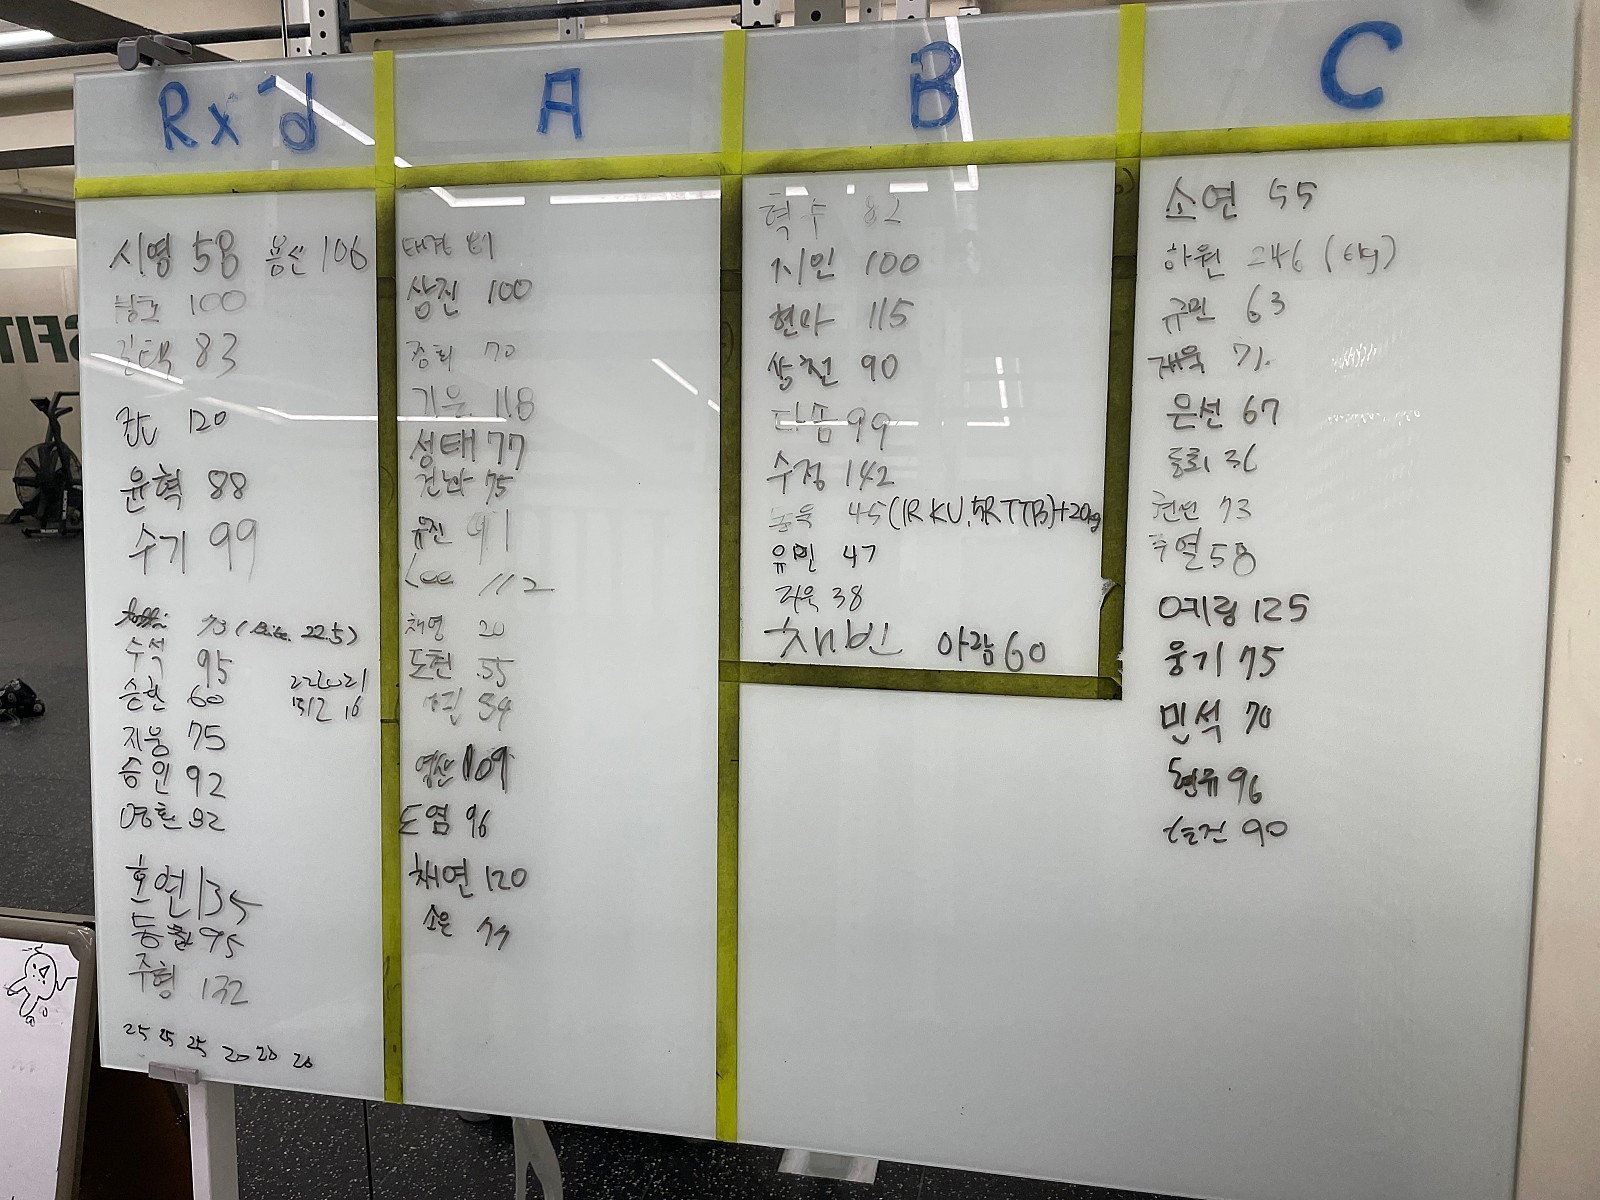 Rx'd
시영 58 용선 106
100
83
120
윤혁 88
수기 99
73 ( 22.5)
수석 95
승환 60
지웅 75
승인 92
영환 92
호연 135
동협 95
주형 132
25 25 25 20 20 20
A
태경
삼진 100
종희 70
기은 118
성태 77
75
유진 91
Lee 112
채영 20
도현 55
54
영산 109
도염 96
채연 120
소은 77
B
혁수 82
지인 100
현아 115
상천 90
다솜 99
수정 142
45 (1R KU, 5R TTB)+20kg
유민 47
38
채빈 아람 60
C
소연 55
하원 246
규민 63
재욱 71
은선 67
36
73
58
예림 125
웅기 75
민석 70
현유 96
90
SFIT